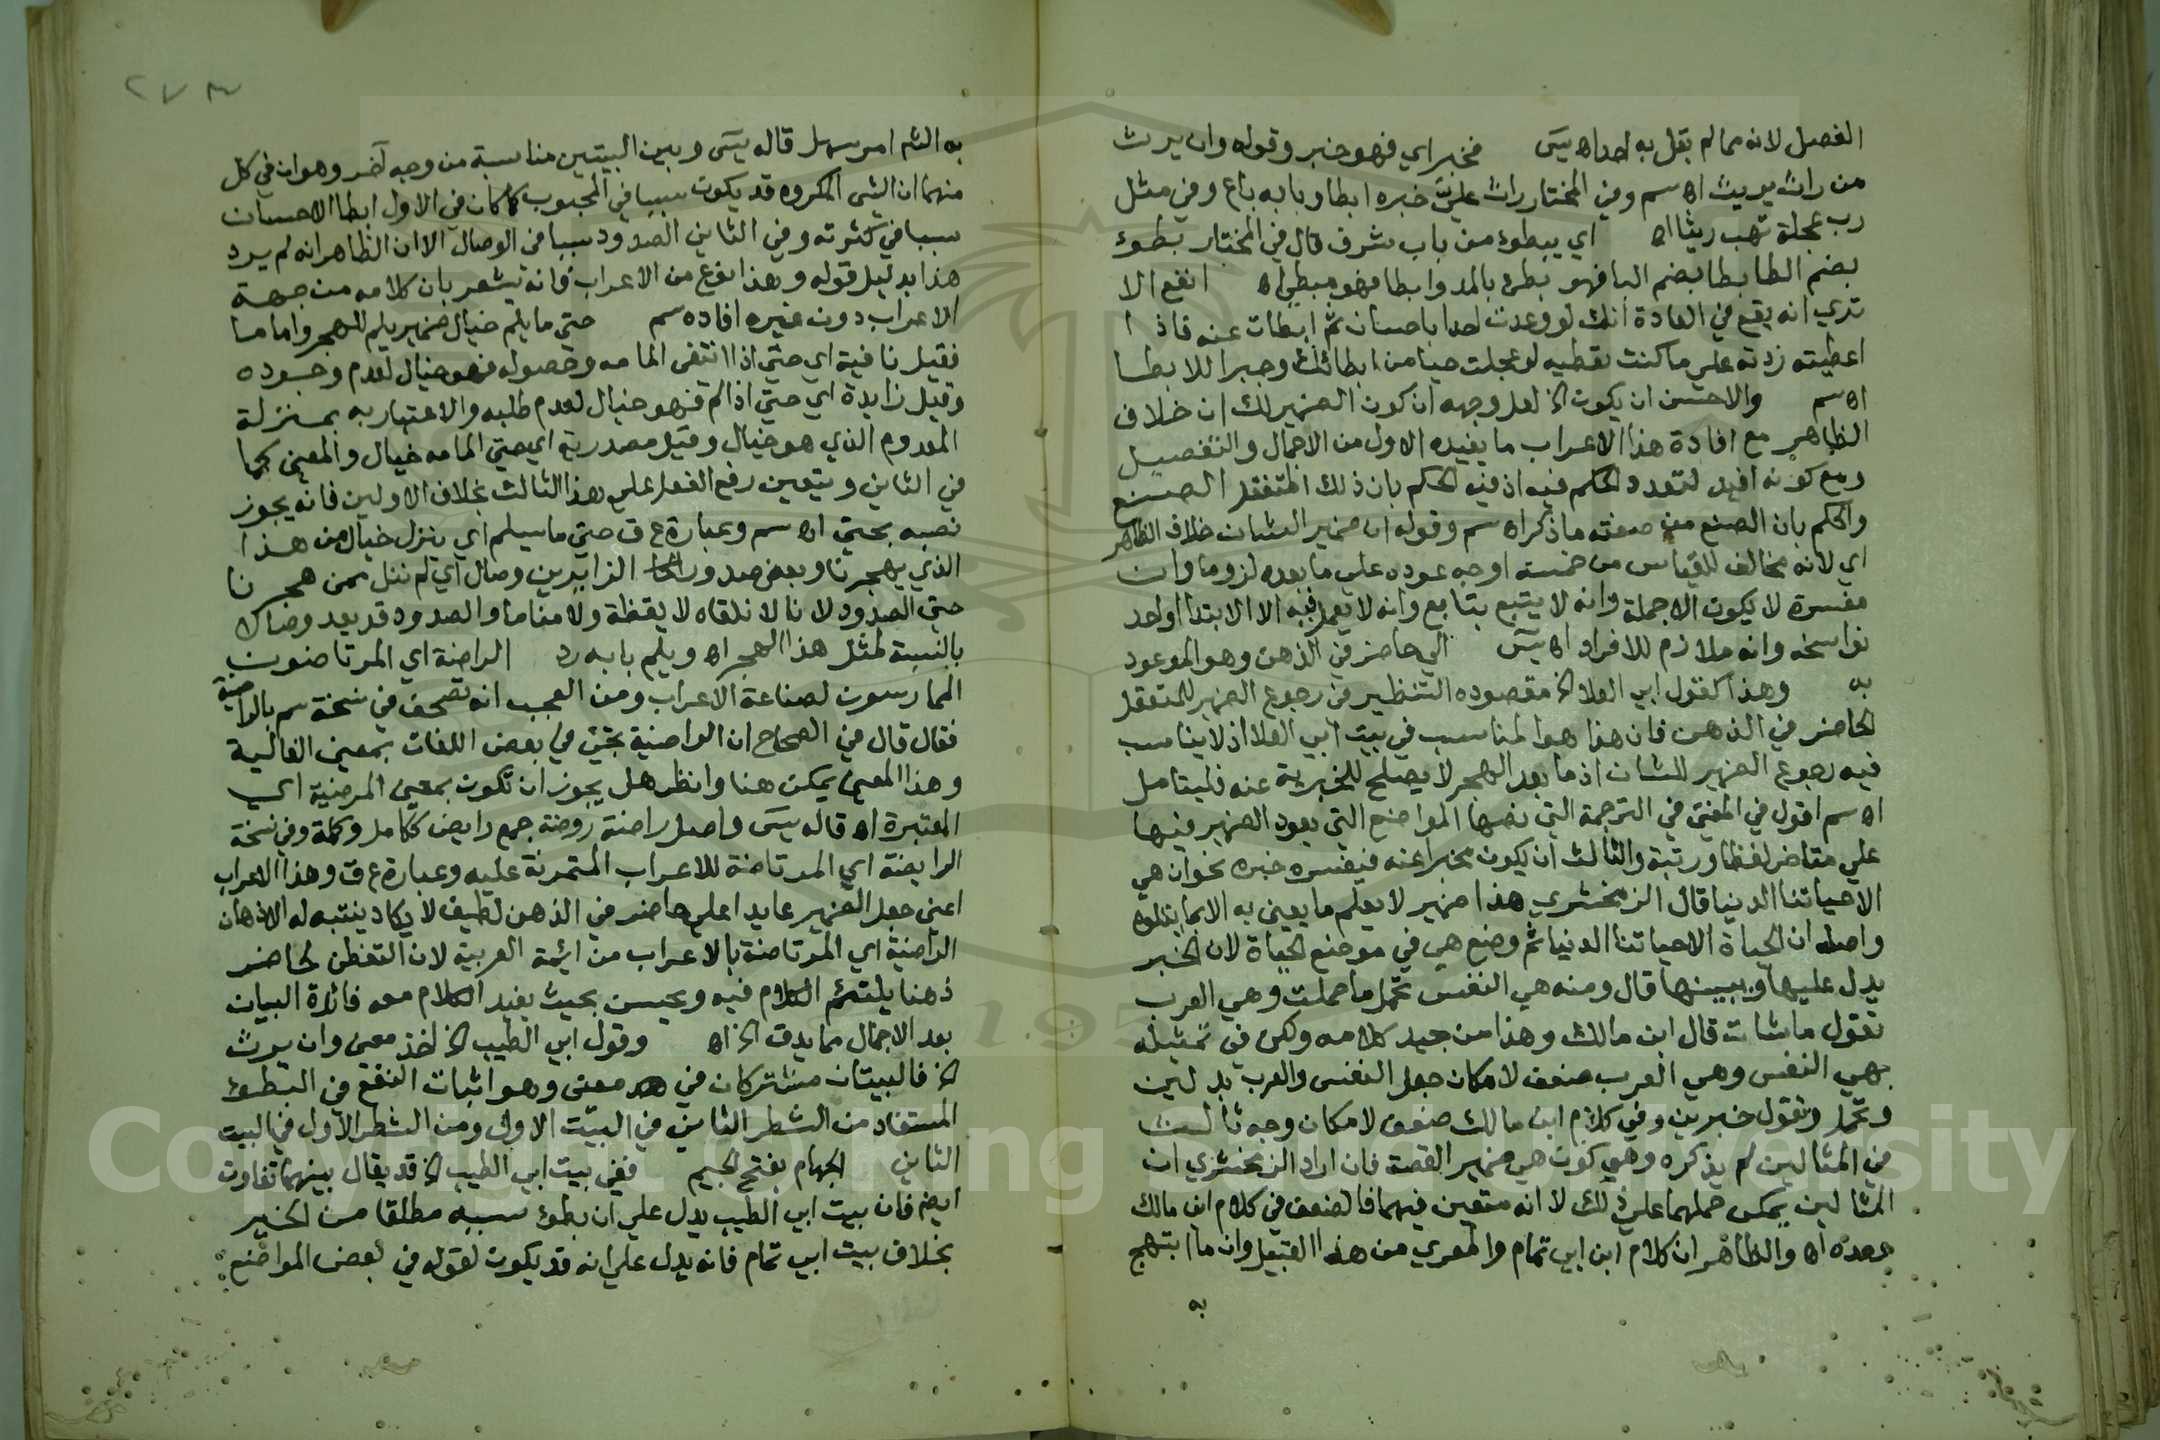 الفصل لانه مما لم يقل به احد اه يسَ فخبر اي فهو خبر وقوله وان يرث
من راث يريث اه سم وفي المختار راث عليَّ خبره ابطا وبابه باع وفي مثل
رب عجلة تهب ريثا اه اي يبطوء من باب شرف قال في المختار بطوء
بضم الطا بطا بضم البا فهو بطئ بالمد وابطا فهو مبطئ اه انفع الا
تري انه يقع في العادة انك لو وعدت احدا باحسان ثم ابطات عنه فاذا
اعطيته زدته علي ما كنت تعطيه لو عجلت حيا من ابطائك وجبرا للابطا
اه سم والاحسن ان يكون الخ لعل وجهه ان كون الضمير لك ان خلاف
الظاهر مع افادة هذا الاعراب ما يفيده الاول من الاجمال والتفصيل
ومع كونه افيد لتعدد الحكم فيه اذ فيه الحكم بان ذلك المتفعل الصنع
والحكم بان الصنع من صفته ما ذكر اه سم وقوله ان ضمير الشان خلاف الظاهر
اي لانه مخالف للقياس من خمسة اوجه عوده علي ما بعده لزوما وان
مفسره لا يكون الا جملة وانه لا يتبع بتابع وانه لا يعمل فيه الا الابتدا او احد
نواسخه وانه ملازم للافراد اه يسَ الي حاضر في الذهن وهو الموعود
به وهذا كقول ابي العلا الخ مقصوده التنظير في رجوع الضمير للمتعقل
الحاضر في الذهن فان هذا هو المناسب في بيت ابي العلا اذ لا يناسب
فيه رجوع الضمير للشان اذ ما بعد الهجر لا يصلح للخبرية عنه فليتامل
اه سم اقول في المغني في الترجمة التي نصها المواضع التي يعود الضمير فيها
علي متاخر لفظا ورتبة والثالث ان يكون مخبرا عنه فيفسره خبره نحو ان هي
الا حياتنا الدنيا قال الزمخشري هذا ضمير لا يعلم ما يعني به الا بما يتلوه
واصله ان الحياة الا حياتنا الدنيا ثم وضع هي في موضع الحياة لان الخبر
يدل عليها ويبينها قال ومنه هي النفس تحمل ما حملت وهي العرب
تقول ما شات قال ابن مالك وهذا من جيد كلامه ولكن في تمثيله
بهي النفس وهي العرب ضعف لامكان جعل النفس والعرب بدلين
وتحمل وتقول خبرين وفي كلام ابن مالك ضعف لامكان وجه ثالث
في المثالين لم يذكره وهو كون هي ضمير القصة فان اراد الزمخشري ان
المثالين يمكن حملهما علي ذلك لا انه متعين فيهما فالضعف في كلام ابن مالك
وحده اه والظاهر ان كلام ابن ابي تمام والمعري من هذا القبيل وان ما ابتهج
به
به الشم امر سهل قاله يسَ وبين البيتين مناسبة من وجه آخر وهو ان في كل
منهما ان الشي المكروه قد يكون سببا في المحبوب كما كان في الاول ابطا الاحسان
سببا في كثرته وفي الثاني الصدود سببا في الوصال الا ان الظاهر انه لم يرد
هذا بدليل قوله وهذا نوع من الاعراب فانه يشعر بان كلامه من جهة
الاعراب دون غيره افاده سم حتي ما يلم خيال ضمير يلم للهجر واما ما
فقيل نافية اي حتي اذا انتفي المامه وحصوله فهو خيال لعدم وجوده
وقيل زايدة اي حتي اذا الم فهو خيال لعدم طلبه والاعتبار به بمنزلة
المعدوم الذي هو خيال وقيل مصدرية اي حتي المامه خيال والمعني كما
في الثاني ويتعين رفع الفعل علي هذا الثالث بخلاف الاولين فانه يجوز
نصبه بحتي اه سم وعبارة ع ق حتي ما سيلم اي ينزل خيال من هذا
الذي يهجرنا وبعض صدود الزايرين وصال اي لم ننل ممن هجرنا
حتي الصدود لانا لا نلقاه لا يقظة ولا مناما والصدود قد يعد وصال
بالنسبة لمثل هذا الهجر اه ويلم بابه رد الراضة اي المرتاضون
الممارسون لصناعة الاعراب ومن العجب انه تصحف في نسخة سم بالراضية
فقال قال في الصحاح ان الراضية تجئ في بعض اللغات بمعني الغالية
وهذا المعني يمكن هنا وانظر هل يجوز ان تكون بمعني المرضية اي
المعتبرة اه قاله يسَ واصل راضة روضة جمع رايض ككامل وكملة وفي نسخة
الرايضة اي المرتاضة للاعراب المتمرنة عليه وعبارة ع ق وهذا الاعراب
اعني جعل الضمير عايدا علي حاضر في الذهن لطيف لا يكاد ينتبه له الا الاذهان
الراضية اي المرتاضة بالاعراب من ايمة العربية لان التفطن لحاضر
ذهنا يلتئم الكلام فيه ويحسن بحيث يفيد الكلام معه فائدة البيان
بعد الاجمال مما يدق الخ اه وقول ابي الطيب الخ اخذ معني وان يرث
الخ فالبيتان مشتركان في معني وهو اثبات النفع في البطوء
المستفاد من الشطر الثاني في البيت الاول ومن الشطر الاول في البيت
الثاني الجهام بفتح الجيم ففي بيت ابي الطيب الخ قد يقال بينهما تفاوت
ايضا فان بيت ابي الطيب يدل علي ان بطوء سببه مطلقا من الخير
بخلاف بيت ابي تمام فانه يدل علي انه قد يكون لقوله في بعض المواضع
Copyright © King Saud University